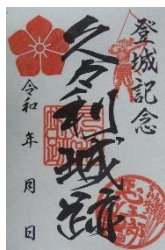 登城記念
久々利城跡
令和 年 月 日